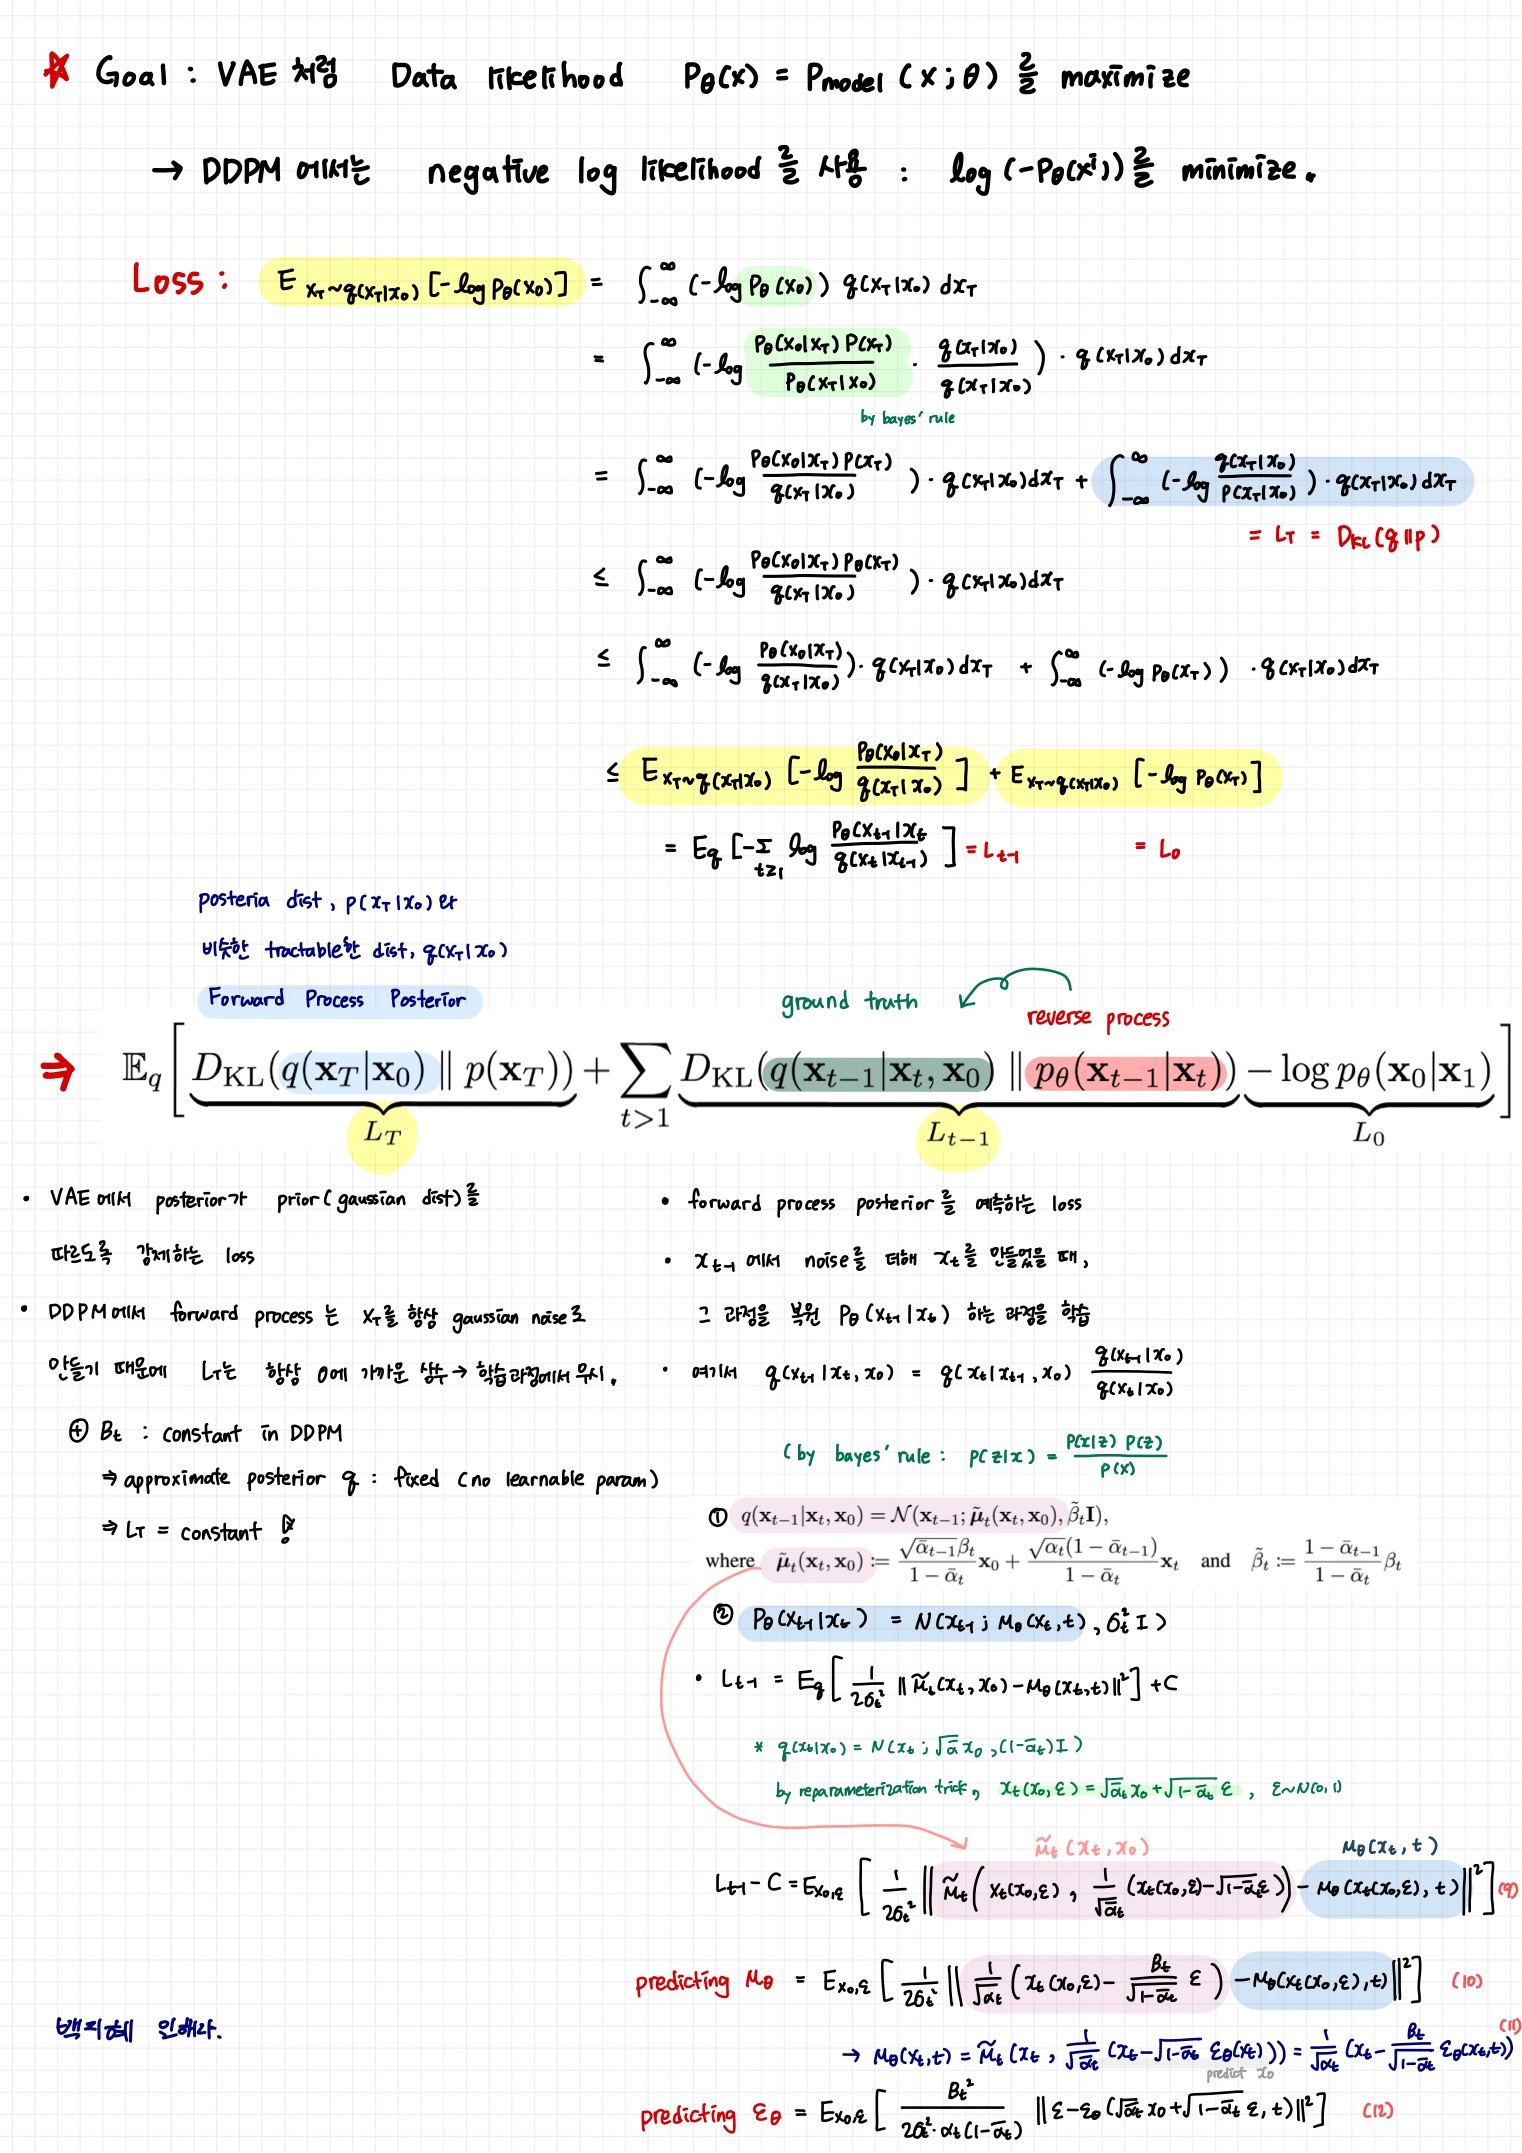 ☆ Goal : VAE 처럼 Data likelihood Pθ(x) = Pmodel (x ; θ) 를 maximize
→ DDPM 에서는 negative log likelihood 를 사용 : log (-Pθ(xⁱ)) 를 minimize.
Loss : E x_T~q(x_T|x_0) [-log Pθ(x_0)] = ∫_{-∞}^{∞} (-log Pθ(x_0)) q(x_T|x_0) dx_T
= ∫_{-∞}^{∞} (-log \frac{Pθ(x_0|x_T) P(x_T)}{Pθ(x_T|x_0)} · \frac{q(x_T|x_0)}{q(x_T|x_0)}) · q(x_T|x_0) dx_T
by bayes' rule
= ∫_{-∞}^{∞} (-log \frac{Pθ(x_0|x_T) P(x_T)}{q(x_T|x_0)}) · q(x_T|x_0) dx_T + ∫_{-∞}^{∞} (-log \frac{q(x_T|x_0)}{P(x_T|x_0)}) · q(x_T|x_0) dx_T
= L_T = D_KL(q||p)
≤ ∫_{-∞}^{∞} (-log \frac{Pθ(x_0|x_T) Pθ(x_T)}{q(x_T|x_0)}) · q(x_T|x_0) dx_T
≤ ∫_{-∞}^{∞} (-log \frac{Pθ(x_0|x_T)}{q(x_T|x_0)}) · q(x_T|x_0) dx_T + ∫_{-∞}^{∞} (-log Pθ(x_T)) · q(x_T|x_0) dx_T
≤ E x_T~q(x_T|x_0) [-log \frac{Pθ(x_0|x_T)}{q(x_T|x_0)}] + E x_T~q(x_T|x_0) [-log Pθ(x_T)]
= E_q [-Σ_{t≥1} log \frac{Pθ(x_{t-1}|x_t}{q(x_t|x_{t-1})}] = L_{t-1} = L_0
posteria dist, p(x_T|x_0) 와
비슷한 tractable한 dist, q(x_T|x_0)
Forward Process Posterior
ground truth
reverse process
⇒ 𝔼_q [ D_KL(q(x_T|x_0) ∥ p(x_T)) + Σ_{t>1} D_KL(q(x_{t-1}|x_t, x_0) ∥ p_θ(x_{t-1}|x_t)) − log p_θ(x_0|x_1) ]
L_T L_{t-1} L_0
• VAE에서 posterior가 prior(gaussian dist)를
따르도록 강제하는 loss
• DDPM에서 forward process 는 x_T를 항상 gaussian noise로
만들기 때문에 L_T는 항상 0에 가까운 상수 → 학습과정에서 무시.
⊕ B_t : constant in DDPM
⇒ approximate posterior q : fixed (no learnable param)
⇒ L_T = constant !
• forward process posterior 를 예측하는 loss
• x_{t-1} 에서 noise를 더해 x_t를 만들었을 때,
그 과정을 복원 Pθ(x_{t-1}|x_t) 하는 과정을 학습
• 여기서 q(x_{t-1}|x_t, x_0) = q(x_t|x_{t-1}, x_0) \frac{q(x_{t-1}|x_0)}{q(x_t|x_0)}
(by bayes' rule : P(z|x) = \frac{P(x|z) P(z)}{P(x)}
① q(x_{t-1}|x_t, x_0) = 𝒩(x_{t-1}; μ̃_t(x_t, x_0), β̃_t I),
where μ̃_t(x_t, x_0) := \frac{√ᾱ_{t-1} β_t}{1 − ᾱ_t} x_0 + \frac{√α_t (1 − ᾱ_{t-1})}{1 − ᾱ_t} x_t and β̃_t := \frac{1 − ᾱ_{t-1}}{1 − ᾱ_t} β_t
② Pθ(x_{t-1}|x_t) = N(x_{t-1} ; Mθ(x_t, t), σ_t² I)
• L_{t-1} = E_q [ \frac{1}{2σ_t²} || M̃_t(x_t, x_0) - Mθ(x_t, t) ||² ] + C
* q(x_t|x_0) = N(x_t ; √ᾱ x_0, (1-ᾱ_t) I)
by reparameterization trick, x_t(x_0, ε) = √ᾱ_t x_0 + √(1-ᾱ_t) ε , ε~N(0, 1)
M̃_t (x_t, x_0) Mθ(x_t, t)
L_{t-1} - C = E_{x_0,ε} [ \frac{1}{2σ_t²} || M̃_t ( x_t(x_0, ε), \frac{1}{√ᾱ_t} (x_t(x_0, ε) - √(1-ᾱ_t) ε) ) - Mθ(x_t(x_0, ε), t) ||² ] (9)
predicting Mθ = E_{x_0,ε} [ \frac{1}{2σ_t²} || \frac{1}{√α_t} ( x_t(x_0, ε) - \frac{B_t}{√(1-ᾱ_t)} ε ) - Mθ(x_t(x_0, ε), t) ||² ] (10)
→ Mθ(x_t, t) = M̃_t (x_t, \frac{1}{√ᾱ_t} (x_t - √(1-ᾱ_t) εθ(x_t))) = \frac{1}{√α_t} (x_t - \frac{B_t}{√(1-ᾱ_t)} εθ(x_t, t)) (11)
predict x_0
predicting εθ = E_{x_0,ε} [ \frac{B_t²}{2σ_t² · α_t (1-ᾱ_t)} || ε - εθ (√ᾱ_t x_0 + √(1-ᾱ_t) ε, t) ||² ] (12)